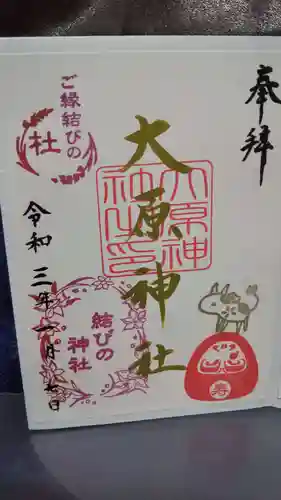 奉拝
大原神社
大原神
社之印
ご縁結びの
社
結びの
神社
令和三年一月七日
寿